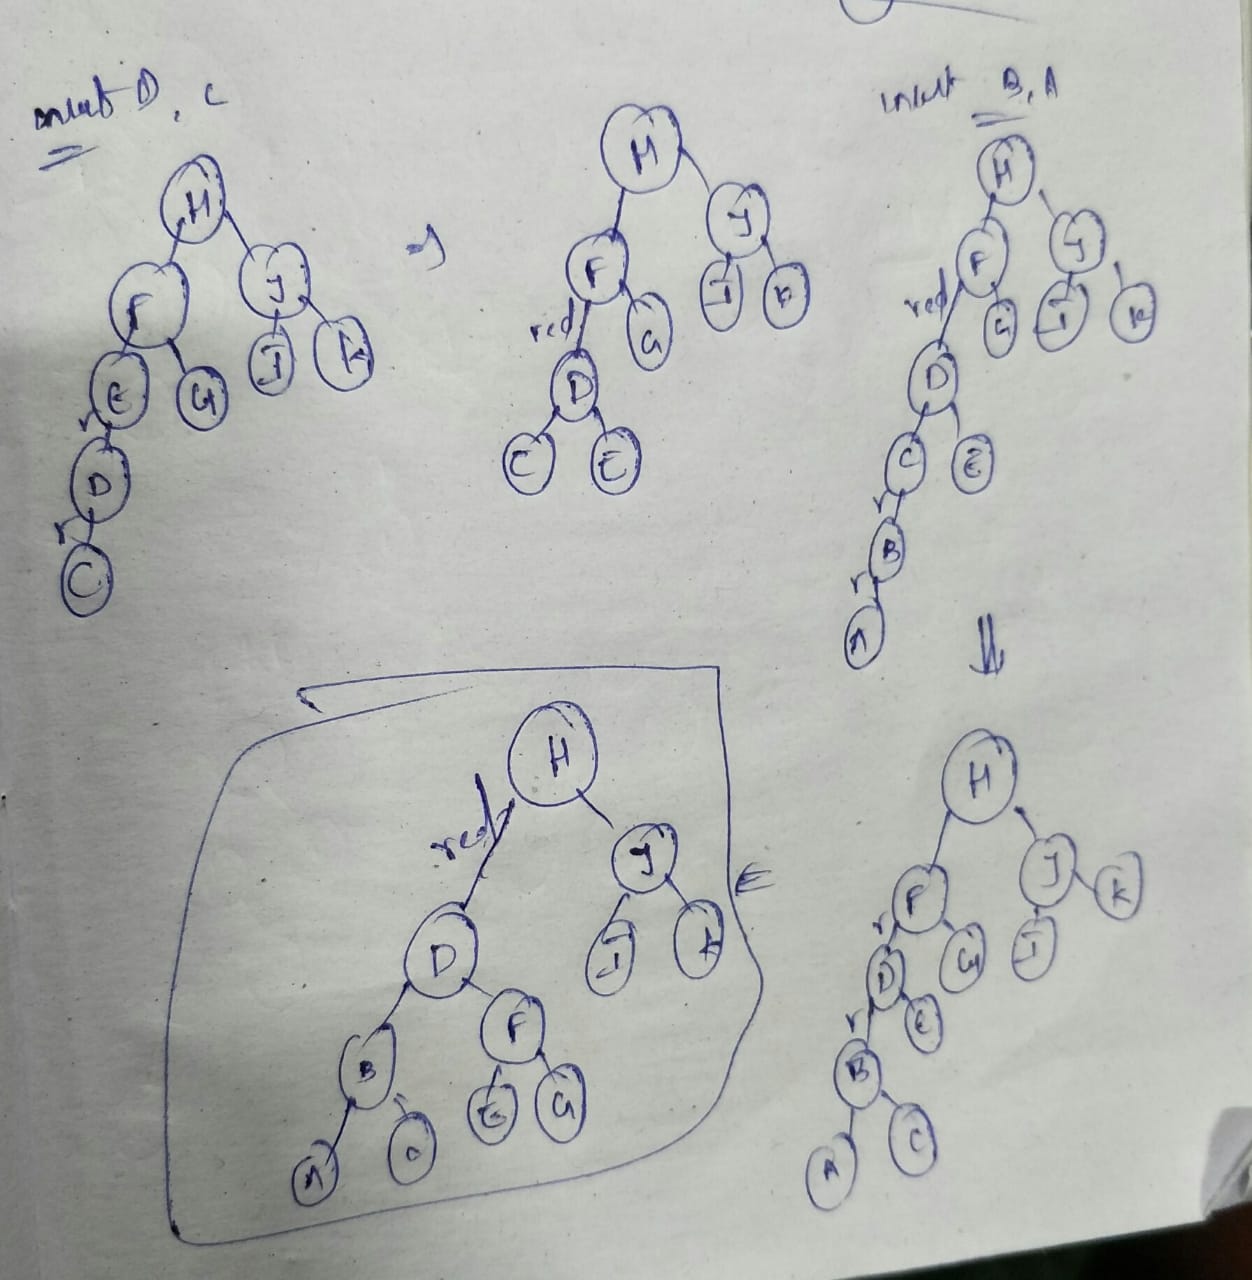 insert D, C
H
F J
E G I K
r
D
r
C
H
F J
red G I K
D
C E
insert B, A
H
F J
red G I K
D
C E
r
B
r
A
H
F J K
r
D G I
r
B E
A C
H
red
J
D I K
F
B E G
A C